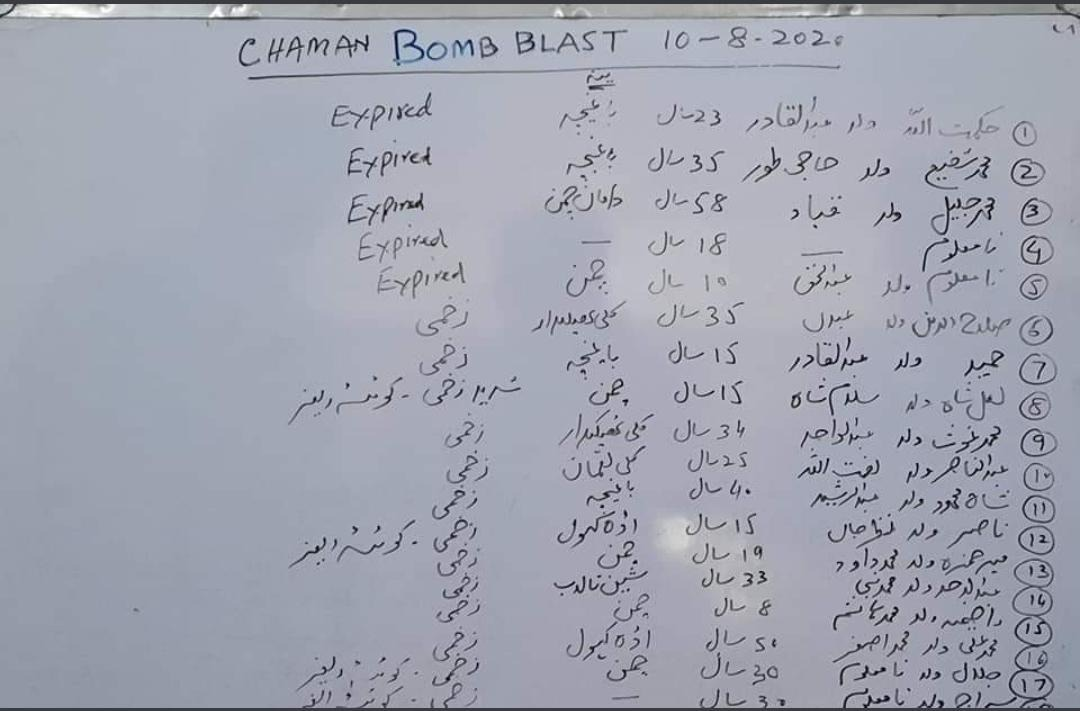 CHAMAN BOMB BLAST 10-8-2020
پتہ
① حکمت اللہ ولد عبدالقادر 23 سال باغیچہ Expired
② محمد شفیع ولد حاجی طور 35 سال باغیچہ Expired
③ محمد جمیل ولد قباد 58 سال دامان چمن Expired
④ نامعلوم — 18 سال — Expired
⑤ نامعلوم ولد عبدالخق 10 سال چمن Expired
⑥ صلاح الدین ولد عبدل 35 سال کلی ٹھیکیدار زخمی
⑦ حمید ولد عبدالقادر 15 سال باغیچہ زخمی
⑧ لعل شاہ ولد سلام شاہ 15 سال چمن شدید زخمی - کوئٹہ ریفر
⑨ محمد غوث ولد عبدالواحد 34 سال کلی ٹھیکیدار زخمی
⑩ عبدالناصر ولد نعمت اللہ 25 سال کلی لقمان زخمی
⑪ شاہ محمود ولد عبدالرشید 40 سال باغیچہ زخمی
⑫ ناصر ولد جان 15 سال اڈہ کہول زخمی - کوئٹہ ریفر
⑬ میر حمزہ ولد محمد داود 19 سال چمن زخمی
⑭ عبدالاحد ولد محمد نبی 33 سال شین تالاب زخمی
⑮ ولد محمد ہاشم 8 سال چمن زخمی
⑯ محمد علی ولد محمد اصغر 50 سال اڈہ کہول زخمی
⑰ جلال ولد نامعلوم 30 سال چمن زخمی - کوئٹہ ریفر
سراج ولد نامعلوم 30 سال — زخمی - کوئٹہ